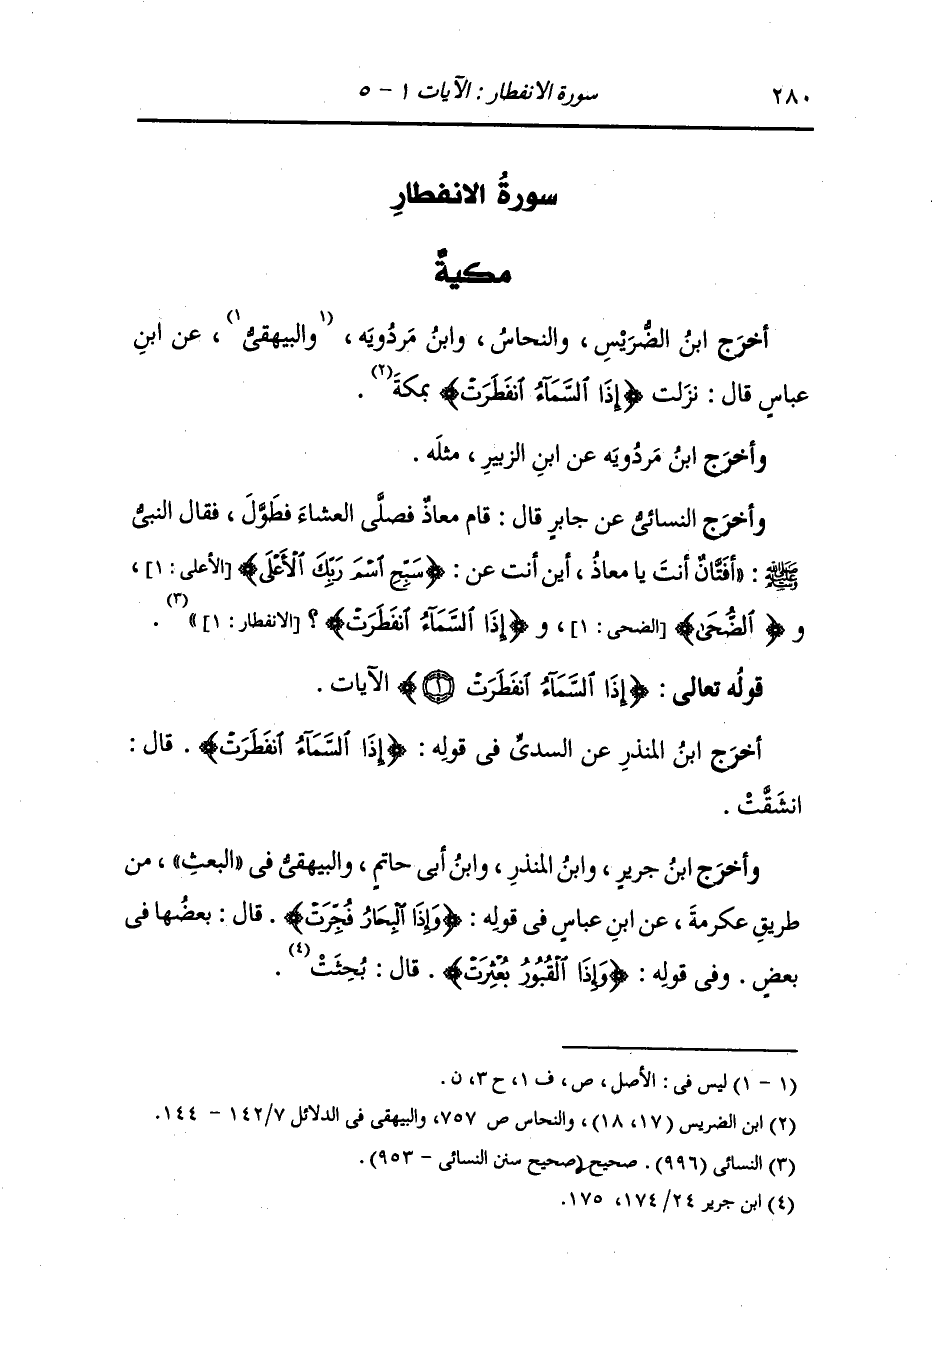 ٢٨٠ سورة الانفطار : الآيات ١ - ٥
سورةُ الانفطارِ
مكيةٌ
أخرَج ابنُ الضُّرَيْسِ ، والنحاسُ ، وابنُ مَرْدُويَه ، (١والبيهقىُّ١) ، عن ابنِ
عباسٍ قال : نزَلت ﴿إِذَا ٱلسَّمَآءُ ٱنفَطَرَتْ﴾ بمكةَ(٢) .
وأخرَج ابنُ مَرْدُويَه عن ابنِ الزبيرِ ، مثلَه .
وأخرَج النسائىُّ عن جابرٍ قال : قام معاذٌ فصلَّى العشاءَ فطَوَّلَ ، فقال النبىُّ
ﷺ : «أفَتَّانٌ أنتَ يا معاذُ ، أين أنت عن : ﴿سَبِّحِ ٱسْمَ رَبِّكَ ٱلْأَعْلَى﴾ [الأعلى : ١] ،
و ﴿ ٱلضُّحَىٰ﴾ [الضحى : ١] ، و ﴿إِذَا ٱلسَّمَآءُ ٱنفَطَرَتْ﴾ ؟ [الانفطار : ١] »(٣) .
قولُه تعالى : ﴿إِذَا ٱلسَّمَآءُ ٱنفَطَرَتْ ١﴾ الآيات .
أخرَج ابنُ المنذرِ عن السدىِّ فى قولِه : ﴿إِذَا ٱلسَّمَآءُ ٱنفَطَرَتْ﴾ . قال :
انشَقَّتْ .
وأخرَج ابنُ جريرٍ ، وابنُ المنذرِ ، وابنُ أبى حاتمٍ ، والبيهقىُّ فى «البعثِ» ، من
طريقِ عكرمةَ ، عن ابنِ عباسٍ فى قولِه : ﴿وَإِذَا ٱلْبِحَارُ فُجِّرَتْ﴾ . قال : بعضُها فى
بعضٍ . وفى قولِه : ﴿وَإِذَا ٱلْقُبُورُ بُعْثِرَتْ﴾ . قال : بُحِثَتْ(٤) .
(١ - ١) ليس فى : الأصل ، ص ، ف ١، ح ٣، ن .
(٢) ابن الضريس (١٧، ١٨) ، والنحاس ص ٧٥٧، والبيهقى فى الدلائل ٧/ ١٤٢ - ١٤٤.
(٣) النسائى (٩٩٦) . صحيح (صحيح سنن النسائى - ٩٥٣) .
(٤) ابن جرير ٢٤/ ١٧٤، ١٧٥.